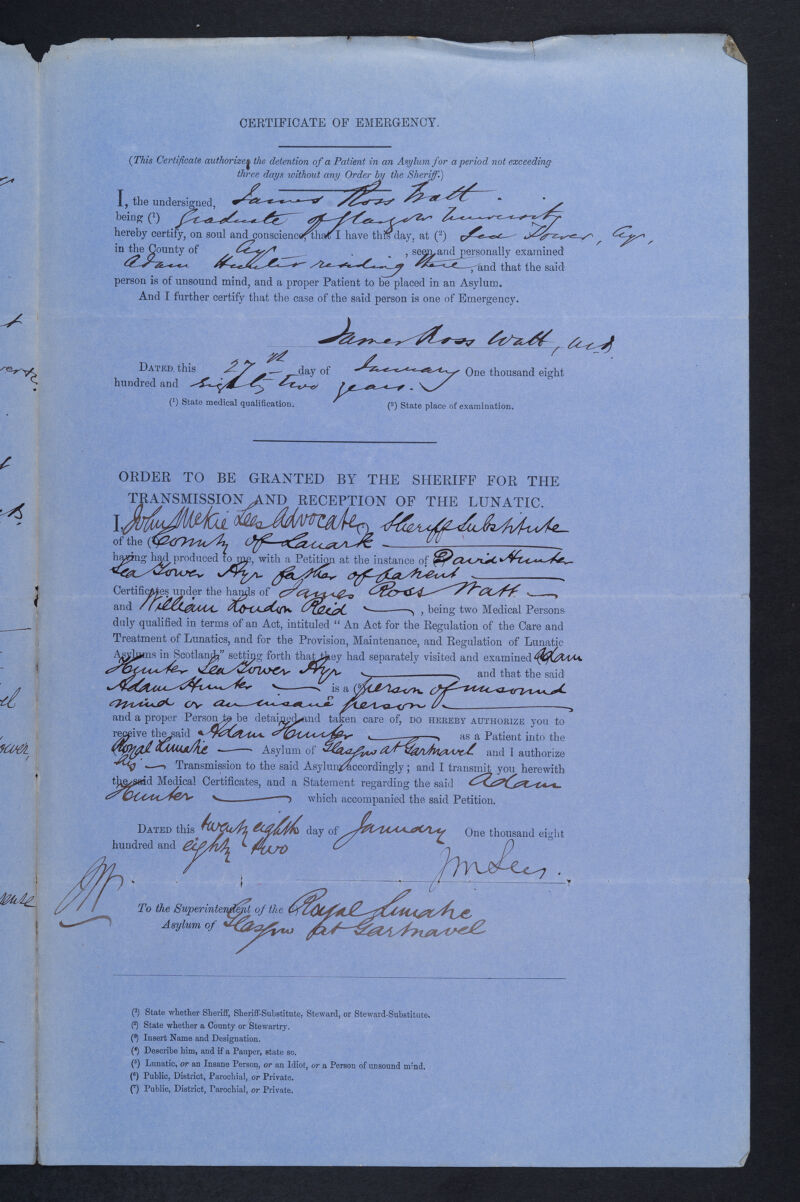 CERTIFICATE OF EMERGENCY.
(This Certificate authorizes the detention of a Patient in an Asylum for a period not exceeding
three days without any Order by the Sheriff.)
I, the undersigned, James Ross Watt
being (1) Graduate of Glasgow University
hereby certify, on soul and conscience, that I have this day, at (2) Sea Tower, Ayr,
in the County of Ayr, seen and personally examined
Adam Hunter residing there, and that the said
person is of unsound mind, and a proper Patient to be placed in an Asylum.
And I further certify that the case of the said person is one of Emergency.
James Ross Watt, M.D.
DATED this 27th day of January One thousand eight
hundred and eighty two years.
(1) State medical qualification. (2) State place of examination.
ORDER TO BE GRANTED BY THE SHERIFF FOR THE
TRANSMISSION AND RECEPTION OF THE LUNATIC.
I, John Mekie Lees Advocate, Sheriff Substitute
of the County of Lanark
having had produced to me, with a Petition at the instance of David Hunter
Sea Tower Ayr father of patient
Certificates under the hands of James Ross Watt
and William Loudon Reid, being two Medical Persons
duly qualified in terms of an Act, intituled "An Act for the Regulation of the Care and
Treatment of Lunatics, and for the Provision, Maintenance, and Regulation of Lunatic
Asylums in Scotland," setting forth that they had separately visited and examined Adam
Hunter Sea Tower Ayr and that the said
Adam Hunter is a (5) person of unsound
mind or an insane person
and a proper Person to be detained and taken care of, DO HEREBY AUTHORIZE you to
receive the said Adam Hunter as a Patient into the
Royal Lunatic Asylum of Glasgow at Gartnavel and I authorize
his Transmission to the said Asylum accordingly; and I transmit you herewith
the said Medical Certificates, and a Statement regarding the said Adam
Hunter which accompanied the said Petition.
DATED this twenty eighth day of January One thousand eight
hundred and eighty two
JM Lees.
To the Superintendent of the Royal Lunatic
Asylum of Glasgow at Gartnavel
(1) State whether Sheriff, Sheriff-Substitute, Steward, or Steward-Substitute.
(2) State whether a County or Stewartry.
(3) Insert Name and Designation.
(4) Describe him, and if a Pauper, state so.
(5) Lunatic, or an Insane Person, or an Idiot, or a Person of unsound mind.
(6) Public, District, Parochial, or Private.
(7) Public, District, Parochial, or Private.